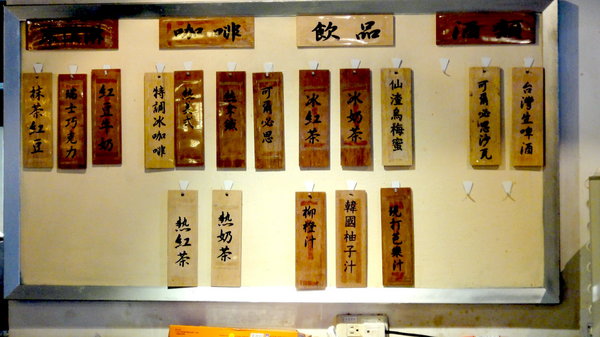 咖啡
飲品
抹茶紅豆
瑞士巧克力
紅豆牛奶
特調冰咖啡
可爾必思
冰紅茶
冰奶茶
仙渣烏梅蜜
可爾必思沙瓦
台灣生啤酒
熱紅茶
熱奶茶
柳橙汁
韓國柚子汁
現打芭樂汁